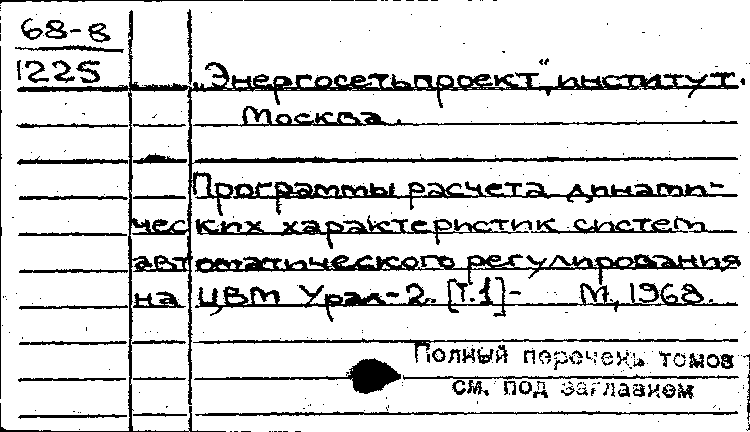 68-8
1225
„Энергосетьпроект“, институт.
Москва.
Программы расчета динами-
ческих характеристик систем
автоматического регулирования
на ЦВМ Урал-2. [Т.1]- М, 1968.
Полный перечень томов
см. под заглавием